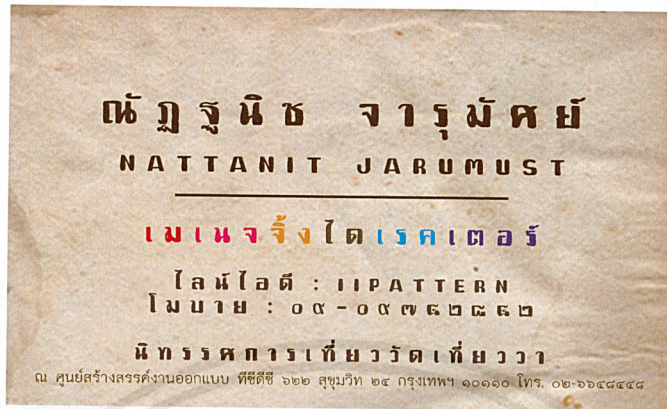 ณัฏฐนิช จารุมัศย์
NATTANIT JARUMUST
เมเนจจิ้งไดเรคเตอร์
ไลน์ไอดี : IIPATTERN
โมบาย :
นิทรรศการเที่ยววัดเที่ยววา
ณ ศูนย์สร้างสรรค์งานออกแบบ ทีซีดีซี ๖๒๒ สุขุมวิท ๒๔ กรุงเทพฯ ๑๐๑๑๐ โทร. ๐๒-๖๖๔๘๔๔๘